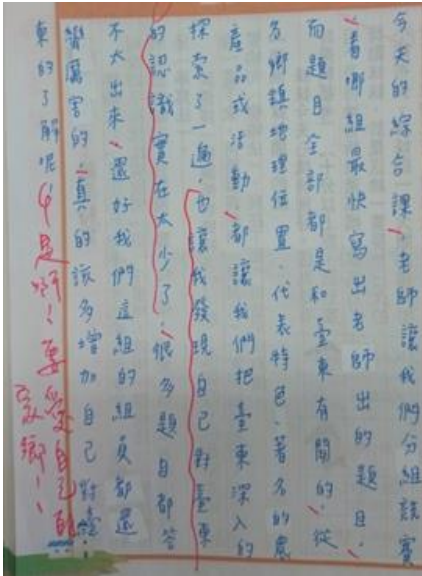 今天的綜合課,老師讓我們分組競賽
,看哪組最快寫出老師出的題目,
而題目全部都是和臺東有關的,從
各鄉鎮地理位置、代表特色、著名的農
產品或活動,都讓我們把臺東深入的
探索了一遍,也讓我發現自己對臺東
的認識實在太少了,很多題目都答
不太出來,還好我們這組的組員都還
蠻厲害的,真的該多增加自己對臺
東的了解呢!
是啊!要愛自己的
家鄉!